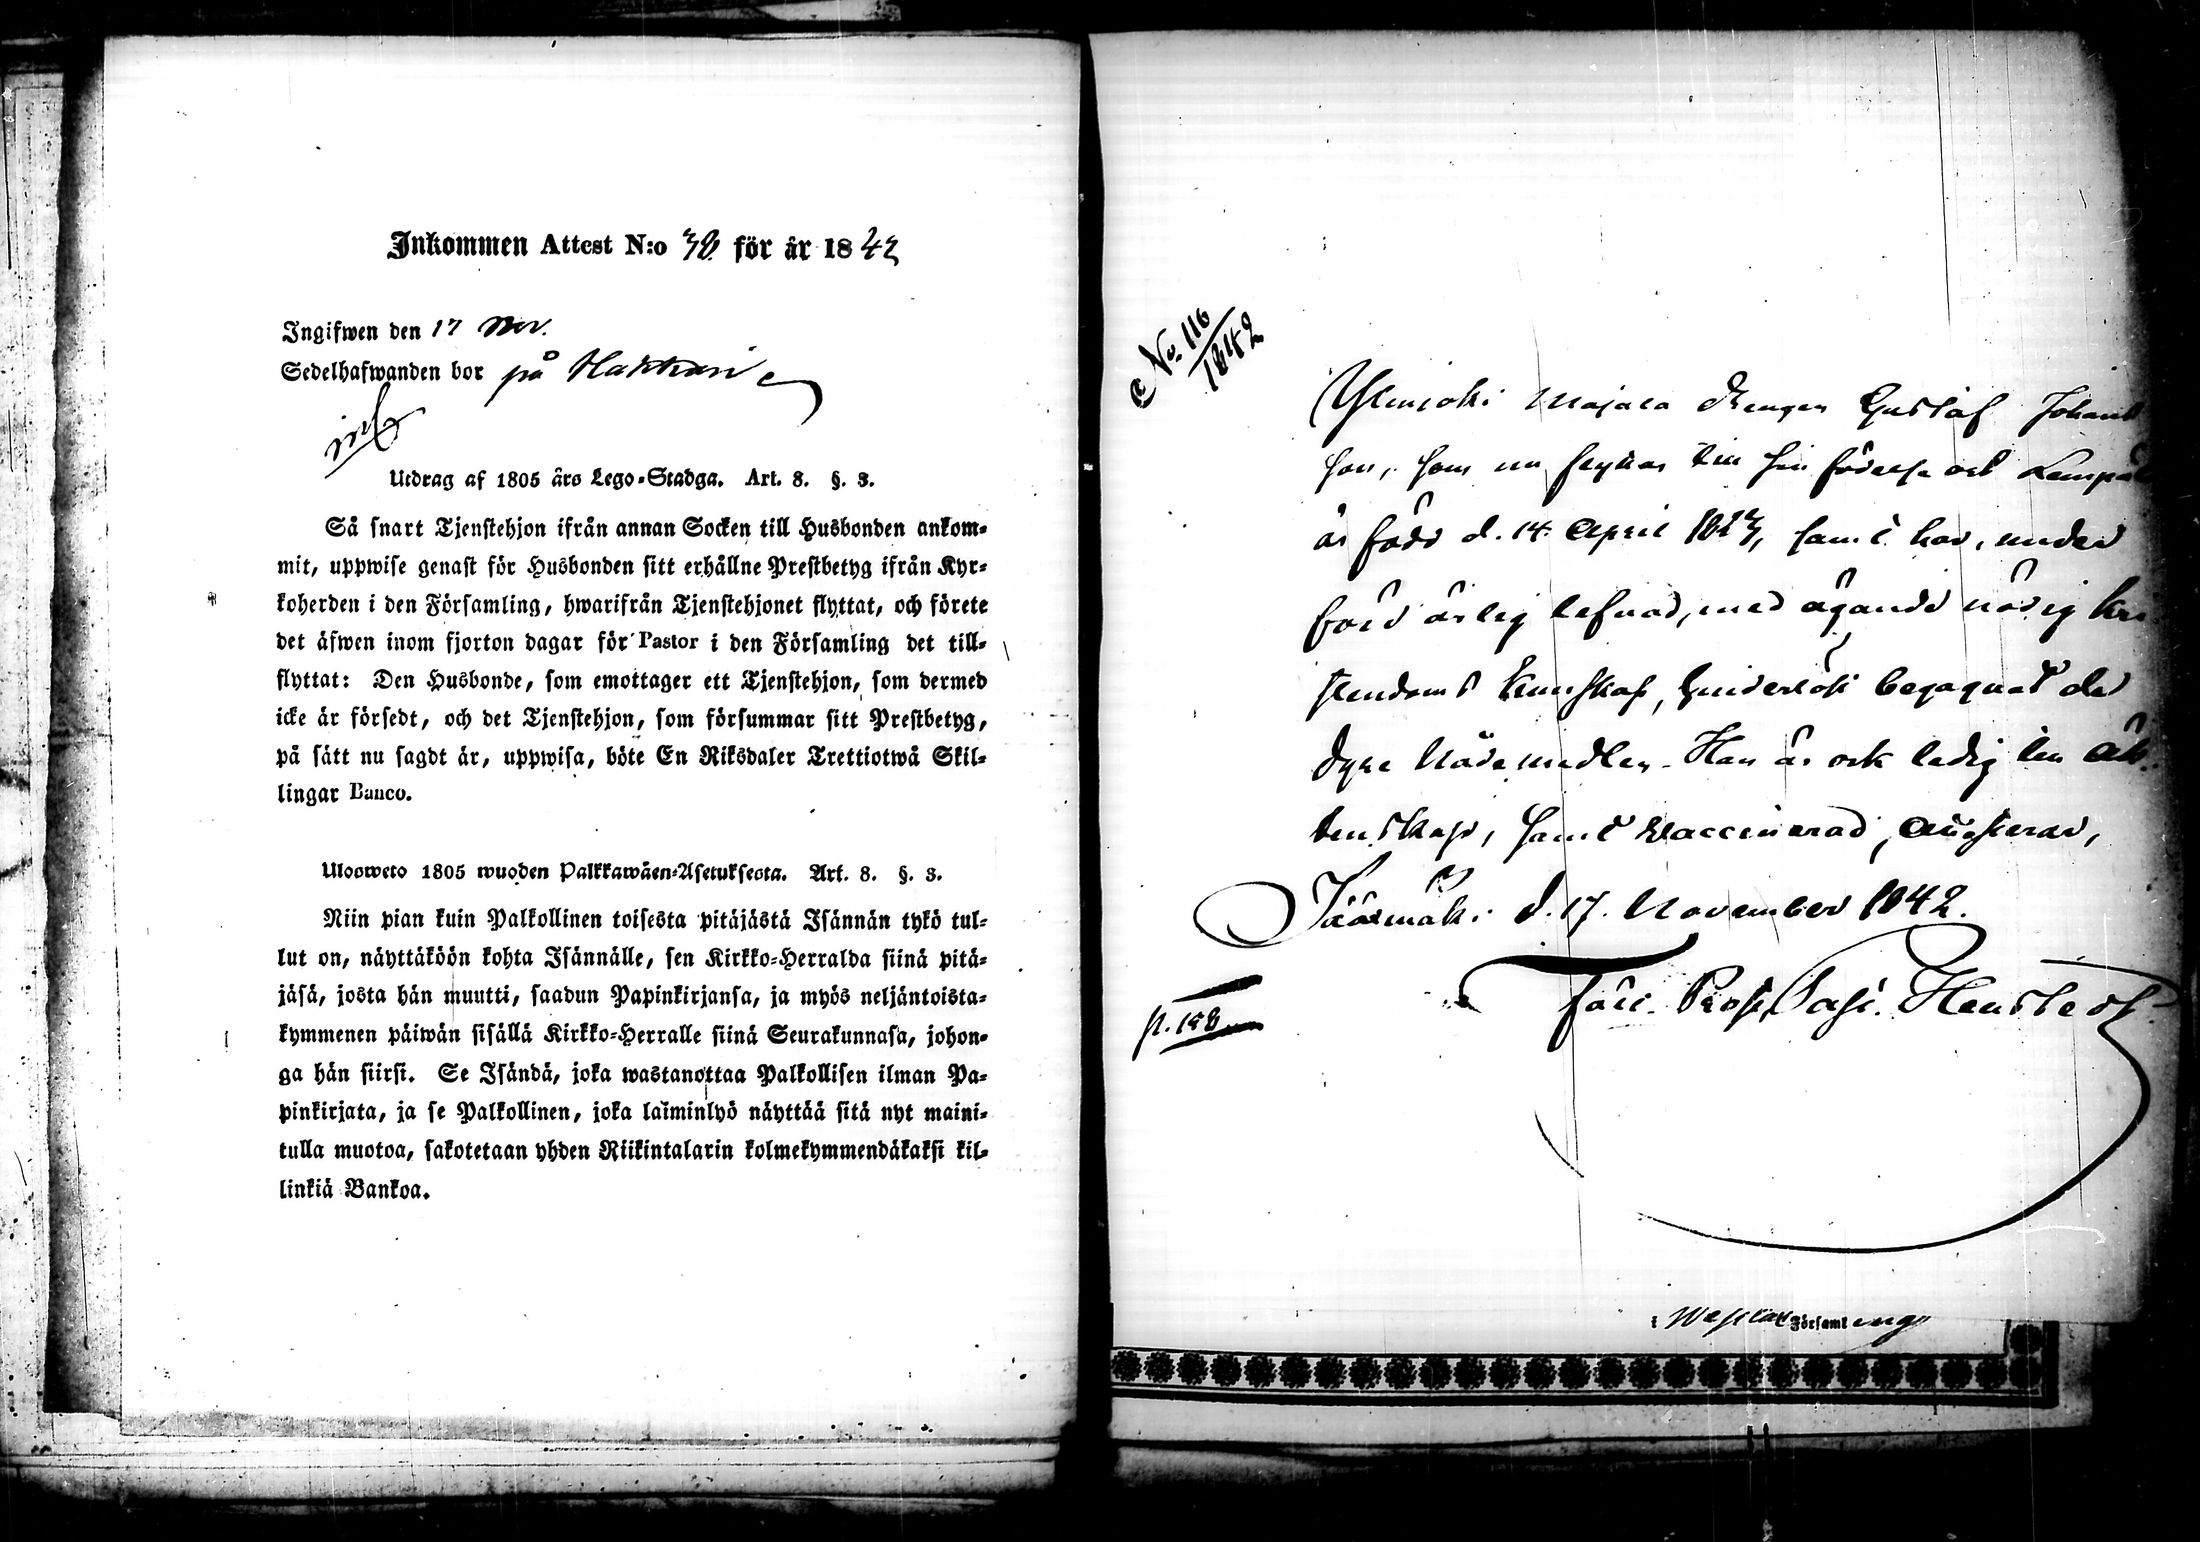 Inkommen Attest N:o 38 för år 1842
Ingifwen den 17 Nov.
Sedelhafwanden bor på Hakkari
inf
Utdrag af 1805 års Lego-Stadga. Art. 8. §. 3.
Så snart Tjenstehjon ifrån annan Socken till Husbonden ankom-
mit, uppwise genast för Husbonden sitt erhållne Prestbetyg ifrån Kyr-
koherden i den Församling, hwarifrån Tjenstehjonet flyttat, och förete
det äfwen inom fjorton dagar för Pastor i den Församling det till-
flyttat: Den Husbonde, som emottager ett Tjenstehjon, som dermed
icke är försedt, och det Tjenstehjon, som försummar sitt Prestbetyg,
på sätt nu sagdt är, uppwisa, böte En Riksdaler Trettiotwå Skil-
lingar Banco.
Ulosweto 1805 wuoden Palkkawäen-Asetuksesta. Art. 8. §. 3.
Niin pian kuin Palkollinen toisesta pitäjästä Isännän tykö tul-
lut on, näyttäköön kohta Isännälle, sen Kirkko-Herralda siinä pitä-
jäsä, josta hän muutti, saadun Papinkirjansa, ja myös neljäntoista-
kymmenen päiwän sisällä Kirkko-Herralle siinä Seurakunnasa, johon-
ga hän siirsi. Se Isändä, joka wastanottaa Palkollisen ilman Pa-
pinkirjata, ja se Palkollinen, joka laiminlyö näyttää sitä nyt maini-
tulla muotoa, sakotetaan yhden Riikintalarin kolmekymmendäkaksi kil-
linkiä Bankoa.
No. 116
1842
Majala Drengen Gustaf Johans
son, som nu flyttar till sin födelse ort Lempäl
är född d. 14 April 1823, samt har, under
förd ärlig lefnad, med ägande nödig kri
stendoms kunskap, behörigt begagnat de
dyre Nådemedlen. Han är ock ledig till äk
tenskap, samt vaccinerad, attesterar,
Sääxmäki d. 17. November 1842.
p. 158
Prost, Past. Hens
i Församling